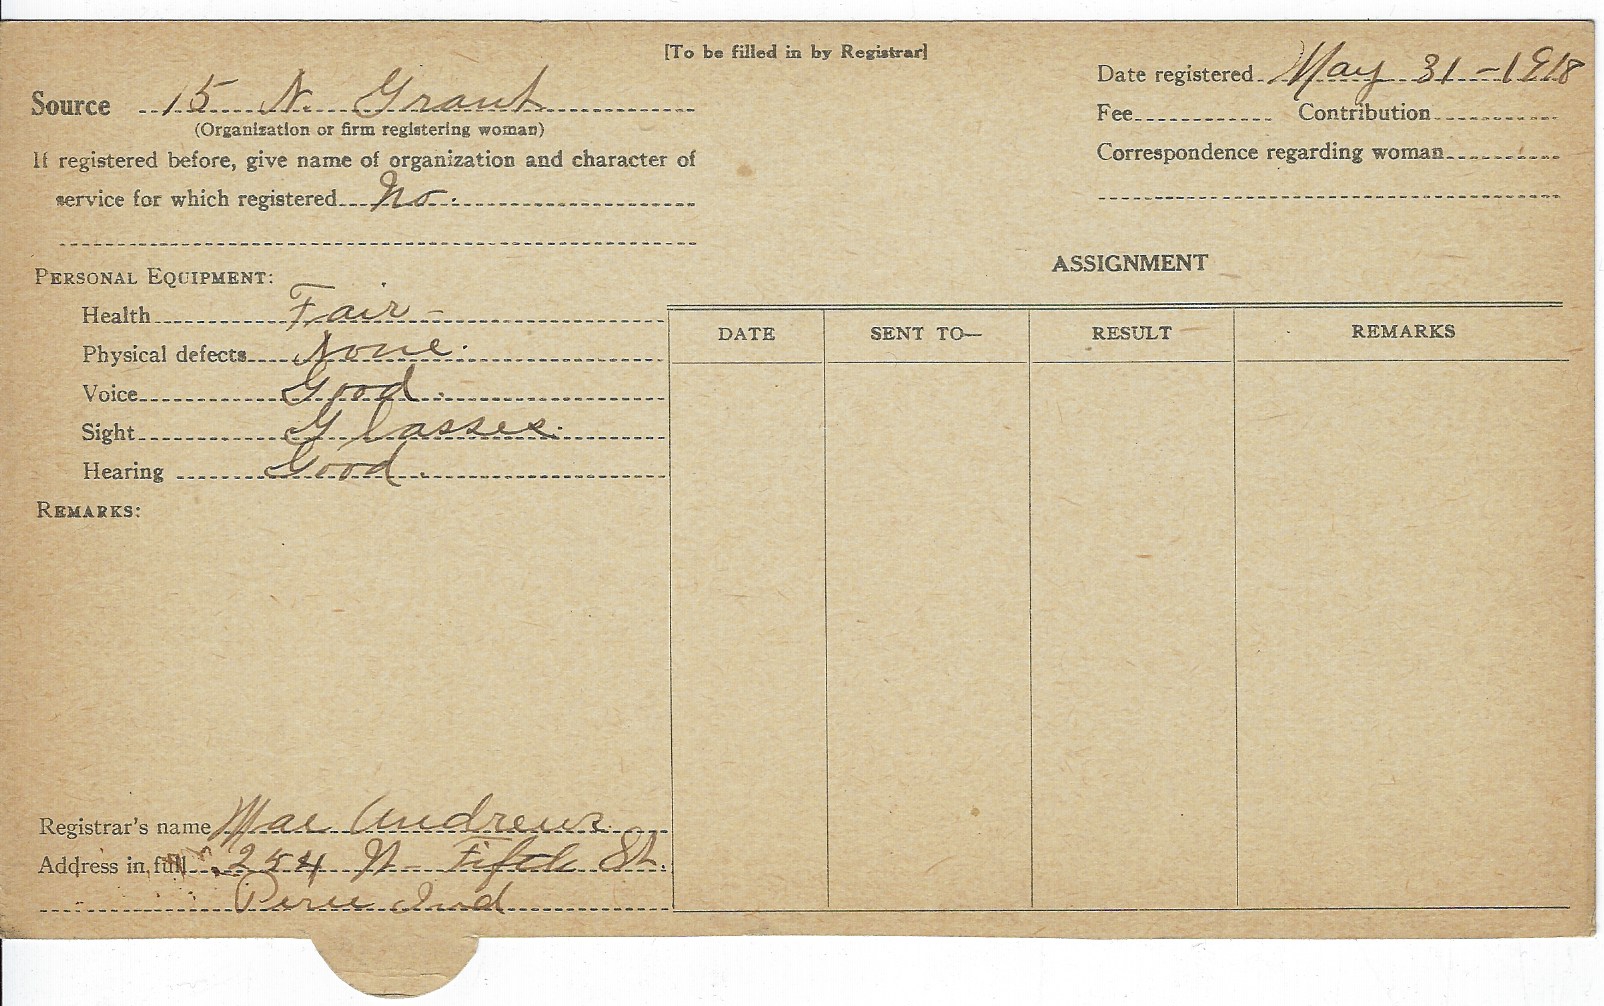 [To be filled in by Registrar]
Date registered May 31-1918
Source 15 N. Grant
(Organization or firm registering woman)
Fee Contribution
If registered before, give name of organization and character of
Correspondence regarding woman
service for which registered No.
PERSONAL EQUIPMENT:
ASSIGNMENT
Health Fair-
Physical defects None.
Voice Good.
Sight Glasses.
Hearing Good.
DATE SENT TO— RESULT REMARKS
REMARKS:
Registrar's name Mae Andrews
Address in full 254 N- Fifth St.
Peru Ind